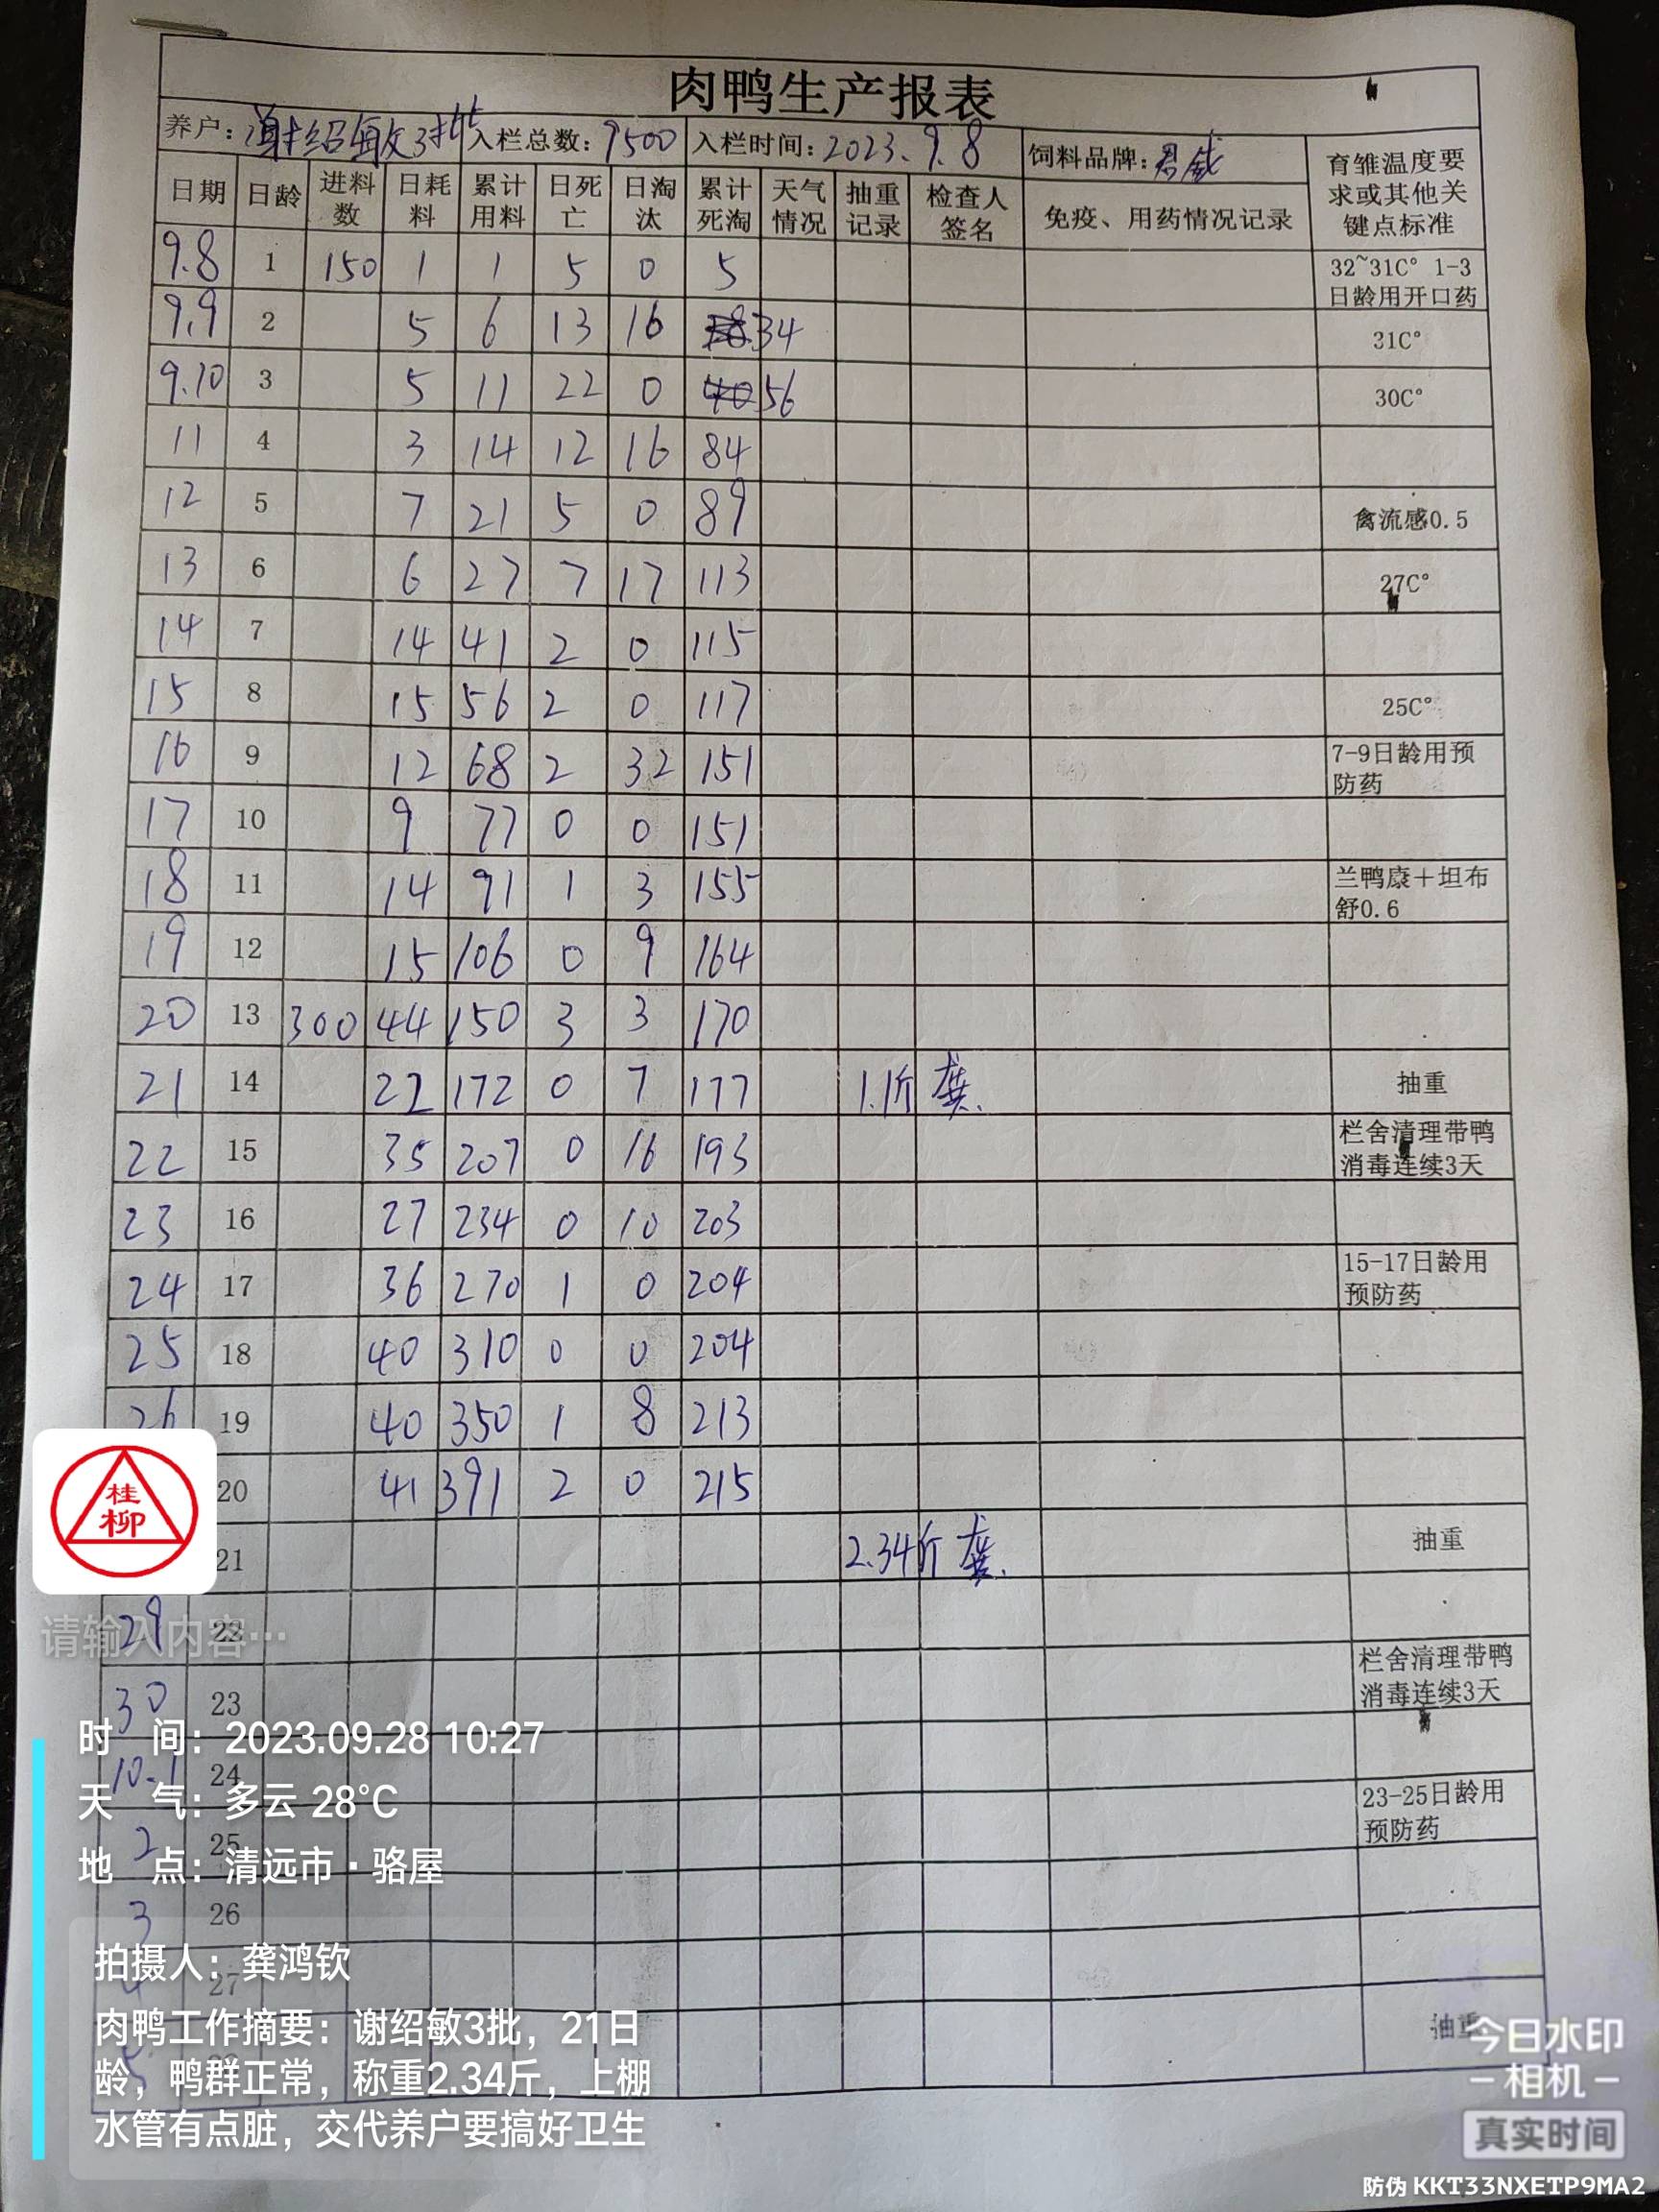 肉鸭生产报表
养户：谢绍敏3批 入栏总数：9500 入栏时间：2023.9.8 饲料品牌：君威 育雏温度要求或其他关键点标准
日期 日龄 进料数 日耗料 累计用料 日死亡 日淘汰 累计死淘 天气情况 抽重记录 检查人签名 免疫、用药情况记录
9.8 1 150 1 1 5 0 5 32~31C° 1-3日龄用开口药
9.9 2 5 6 13 16 34 31C°
9.10 3 5 11 22 0 40 56 30C°
11 4 3 14 12 16 84
12 5 7 21 5 0 89 禽流感0.5
13 6 6 27 7 17 113 27C°
14 7 14 41 2 0 115
15 8 15 56 2 0 117 25C°
16 9 12 68 2 32 151 7-9日龄用预防药
17 10 9 77 0 0 151
18 11 14 91 1 3 155 兰鸭康＋坦布舒0.6
19 12 15 106 0 9 164
20 13 300 44 150 3 3 170
21 14 22 172 0 7 177 1.1斤 龚 抽重
22 15 35 207 0 16 193 栏舍清理带鸭消毒连续3天
23 16 27 234 0 10 203
24 17 36 270 1 0 204 15-17日龄用预防药
25 18 40 310 0 0 204
26 19 40 350 1 8 213
20 41 391 2 0 215
21 2.34斤 龚 抽重
29 22
30 23 栏舍清理带鸭消毒连续3天
10.1 24
2 25 23-25日龄用预防药
3 26
4 27
5 抽重
桂柳
请输入内容…
时 间：2023.09.28 10:27
天 气：多云 28°C
地 点：清远市·骆屋
拍摄人：龚鸿钦
肉鸭工作摘要：谢绍敏3批，21日
龄，鸭群正常，称重2.34斤，上棚
水管有点脏，交代养户要搞好卫生
今日水印
-相机-
真实时间
防伪 KKT33NXETP9MA2